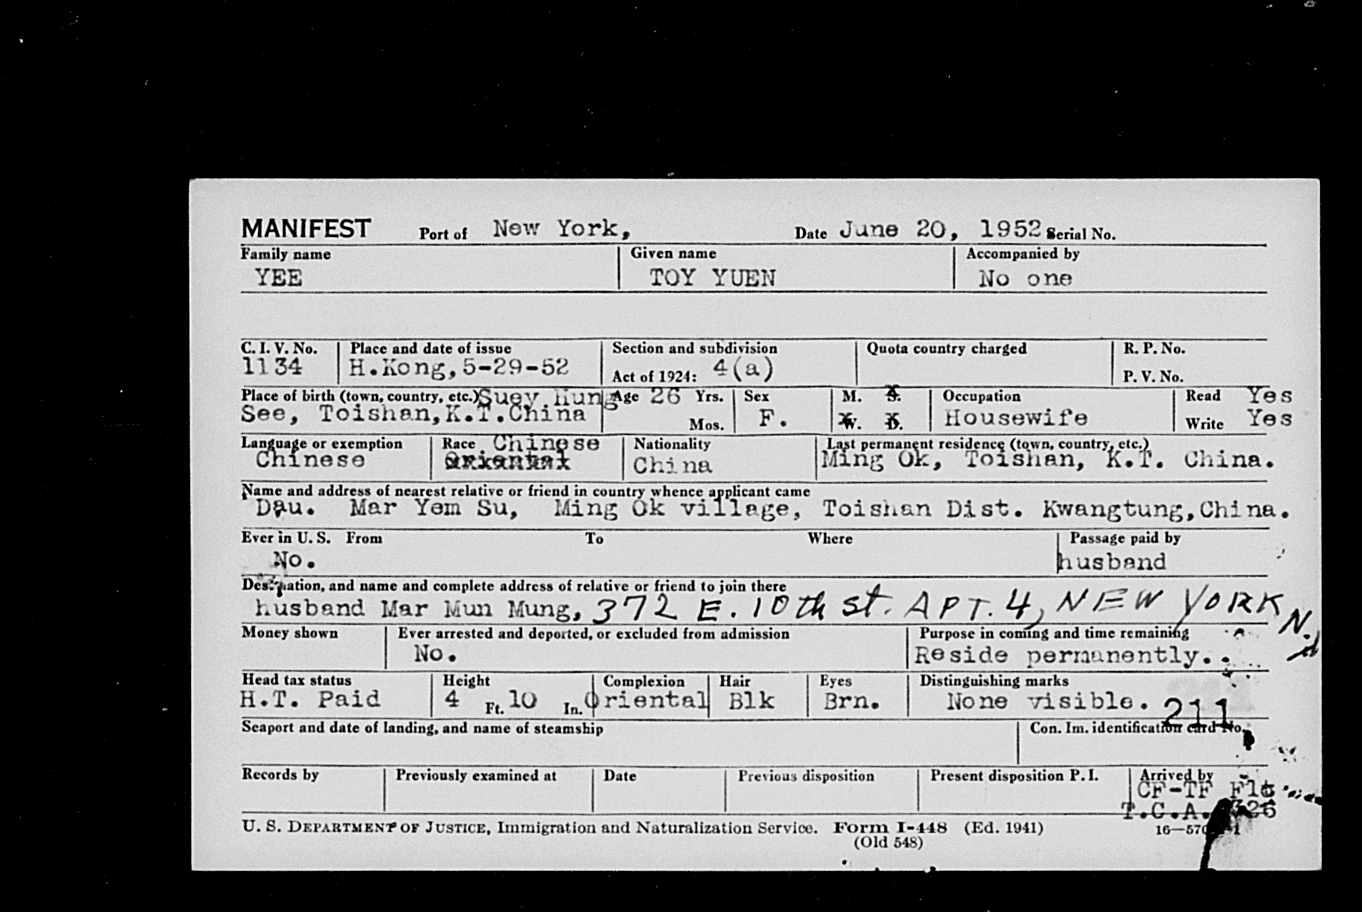 MANIFEST Port of New York, Date June 20, 1952 Serial No.
Family name Given name Accompanied by
YEE TOY YUEN No one
C. I. V. No. Place and date of issue Section and subdivision Quota country charged R. P. No.
1134 H.Kong,5-29-52 Act of 1924: 4(a) P. V. No.
Place of birth (town, country, etc.) Suey Hung Age 26 Yrs. Sex M. S. Occupation Read Yes
See, Toishan,K.T.China Mos. F. W. D. Housewife Write Yes
Language or exemption Race Chinese Nationality Last permanent residence (town, country, etc.)
Chinese Oriental China Ming Ok, Toishan, K.T. China.
Name and address of nearest relative or friend in country whence applicant came
Dau. Mar Yem Su, Ming Ok village, Toishan Dist. Kwangtung,China.
Ever in U. S. From To Where Passage paid by
No. husband
Destination, and name and complete address of relative or friend to join there
husband Mar Mun Mung, 372 E. 10th St. APT. 4, NEW YORK N.Y
Money shown Ever arrested and deported, or excluded from admission Purpose in coming and time remaining
No. Reside permanently.
Head tax status Height Complexion Hair Eyes Distinguishing marks
H.T. Paid 4 Ft. 10 In. Oriental Blk Brn. None visible.
211
Seaport and date of landing, and name of steamship Con. Im. identification card No.
Records by Previously examined at Date Previous disposition Present disposition P. I. Arrived by
CF-TF Flt
T.C.A. 326
U. S. DEPARTMENT OF JUSTICE, Immigration and Naturalization Service. Form I-448 (Ed. 1941)
(Old 548)